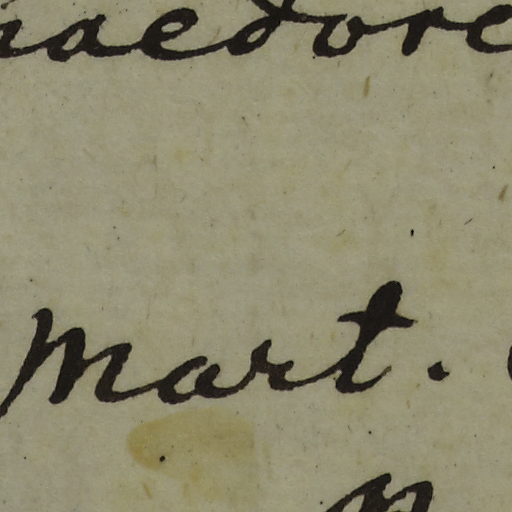 haedore
Mart.